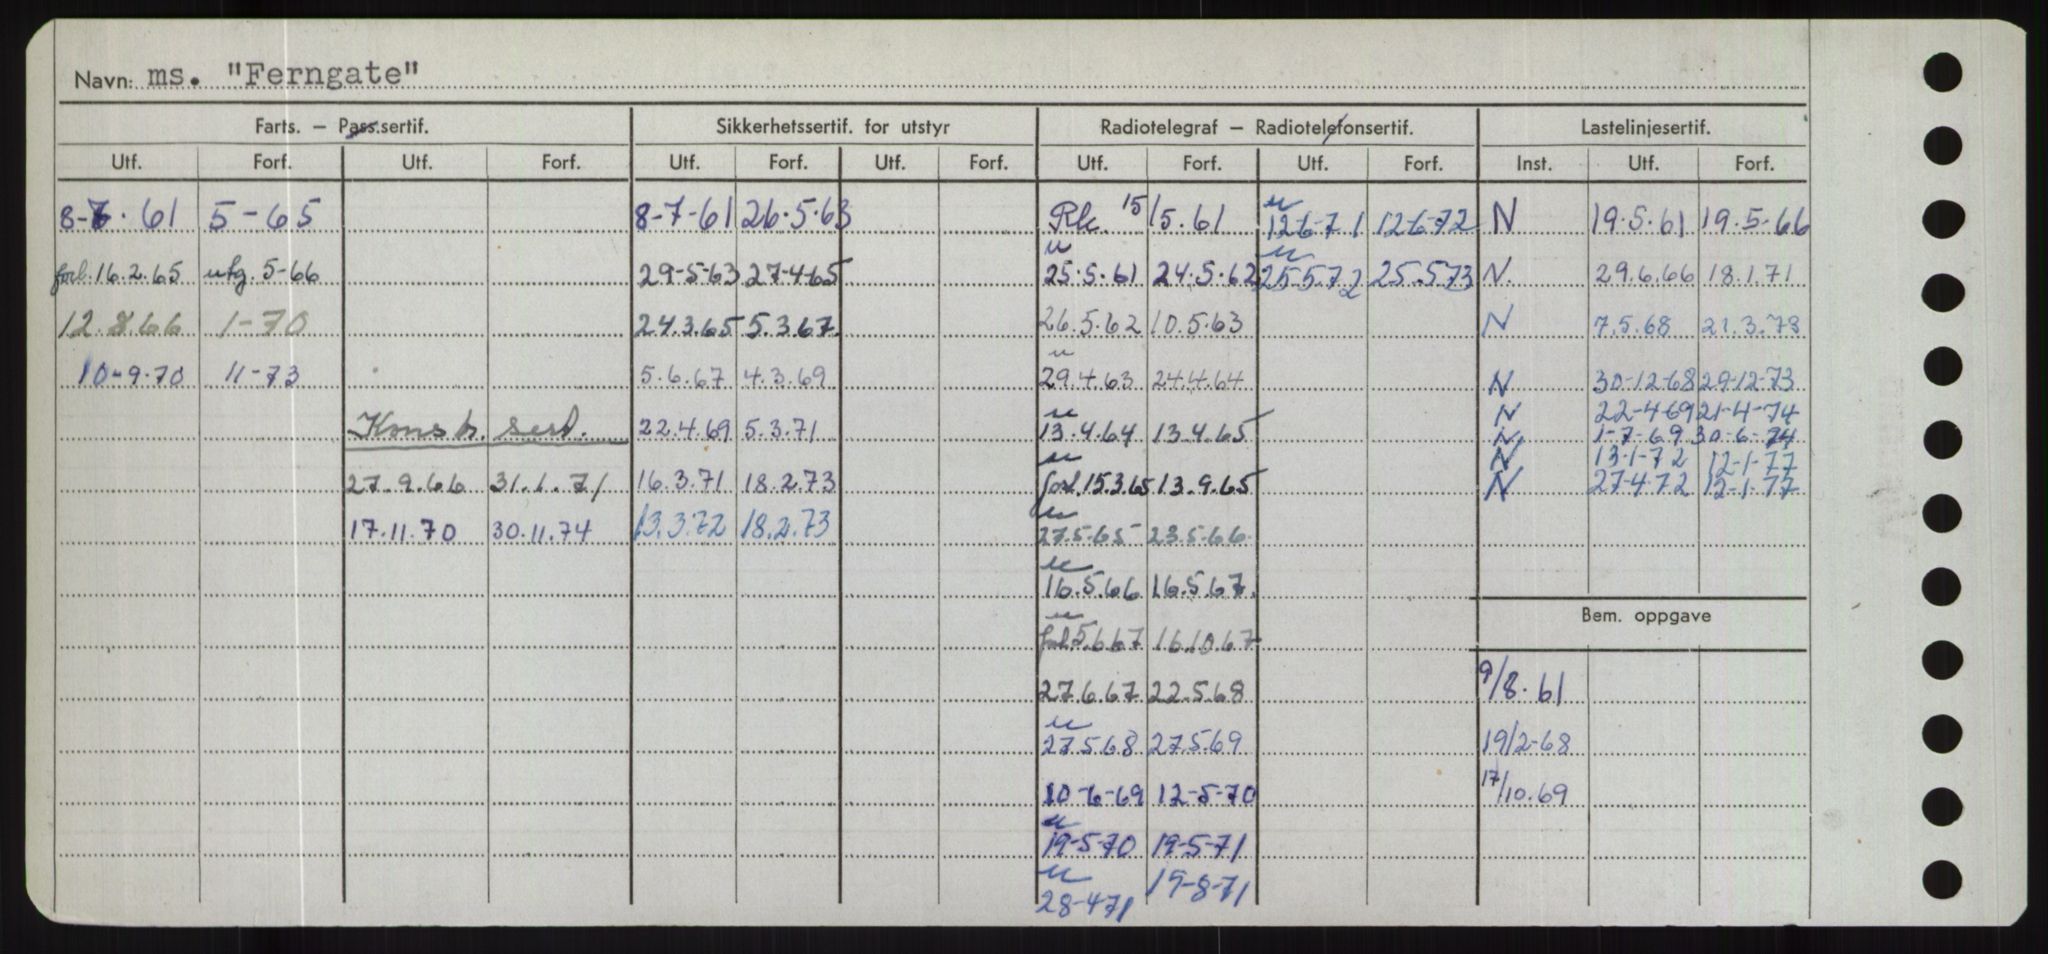 Navn: ms. "Ferngate"
Farts. – Pass.sertif. Sikkerhetssertif. for utstyr Radiotelegraf – Radiotelefonsertif. Lastelinjesertif.
Utf. Forf. Utf. Forf. Utf. Forf. Utf. Forf. Utf. Forf. Utf. Forf. Inst. Utf. Forf.
8-7.61 5-65 8-7-61 26.5.63 Rk. 15/5.61 u 12-6-71 12-6-72 N 19.5.61 19.5-66
forl.16.2.65 utg.5-66 29-5-63 27-4-65 u 25.5.61 24.5.62 u 25.5.72 25.5.73 N. 29.6.66 18.1.71
12.8.66 1-70 24.3.65 5.3.67. 26.5.62 10.5.63 N 7.5.68 21.3.73
10-9-70 11-73 5.6.67 4.3.69 u 29.4.63 24.4.64 N 30-12-68 29-12-73
N 22-4-69 21-4-74
Konstr. sert. 22.4.69 5.3.71 u 13.4.64 13.4.65 N 1-7-69 30-6-74
N 13-1-72 12-1-77
27.9.66 31.1.71 16.3.71 18.2.73 u forl.15.3.65 13.9.65 N 27-4-72 12-1-77
17.11.70 30.11.74 13.3.72 18.2.73 u 27.5-65 23.5.66
u 16.5.66 16.5.67.
Bem. oppgave
u forl.5.6.67 16.10.67
27.6.67 22.5.68 9/8.61
u 27.5.68 27.5.69 19/2-68
10-6-69 12-5-70 17/10.69
u 19-5-70 19-5-71
u 28-4-71 19-8-71